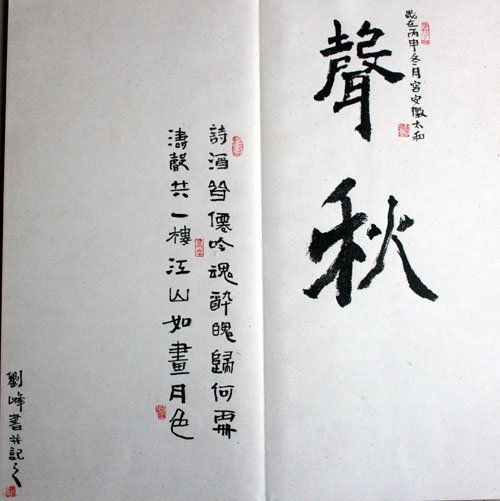 歲在丙申冬月安徽太和
聲秋
詩酒皆僊吟魂醉魄歸何再
濤聲共一樓江山如畫月色
劉峰書並記之